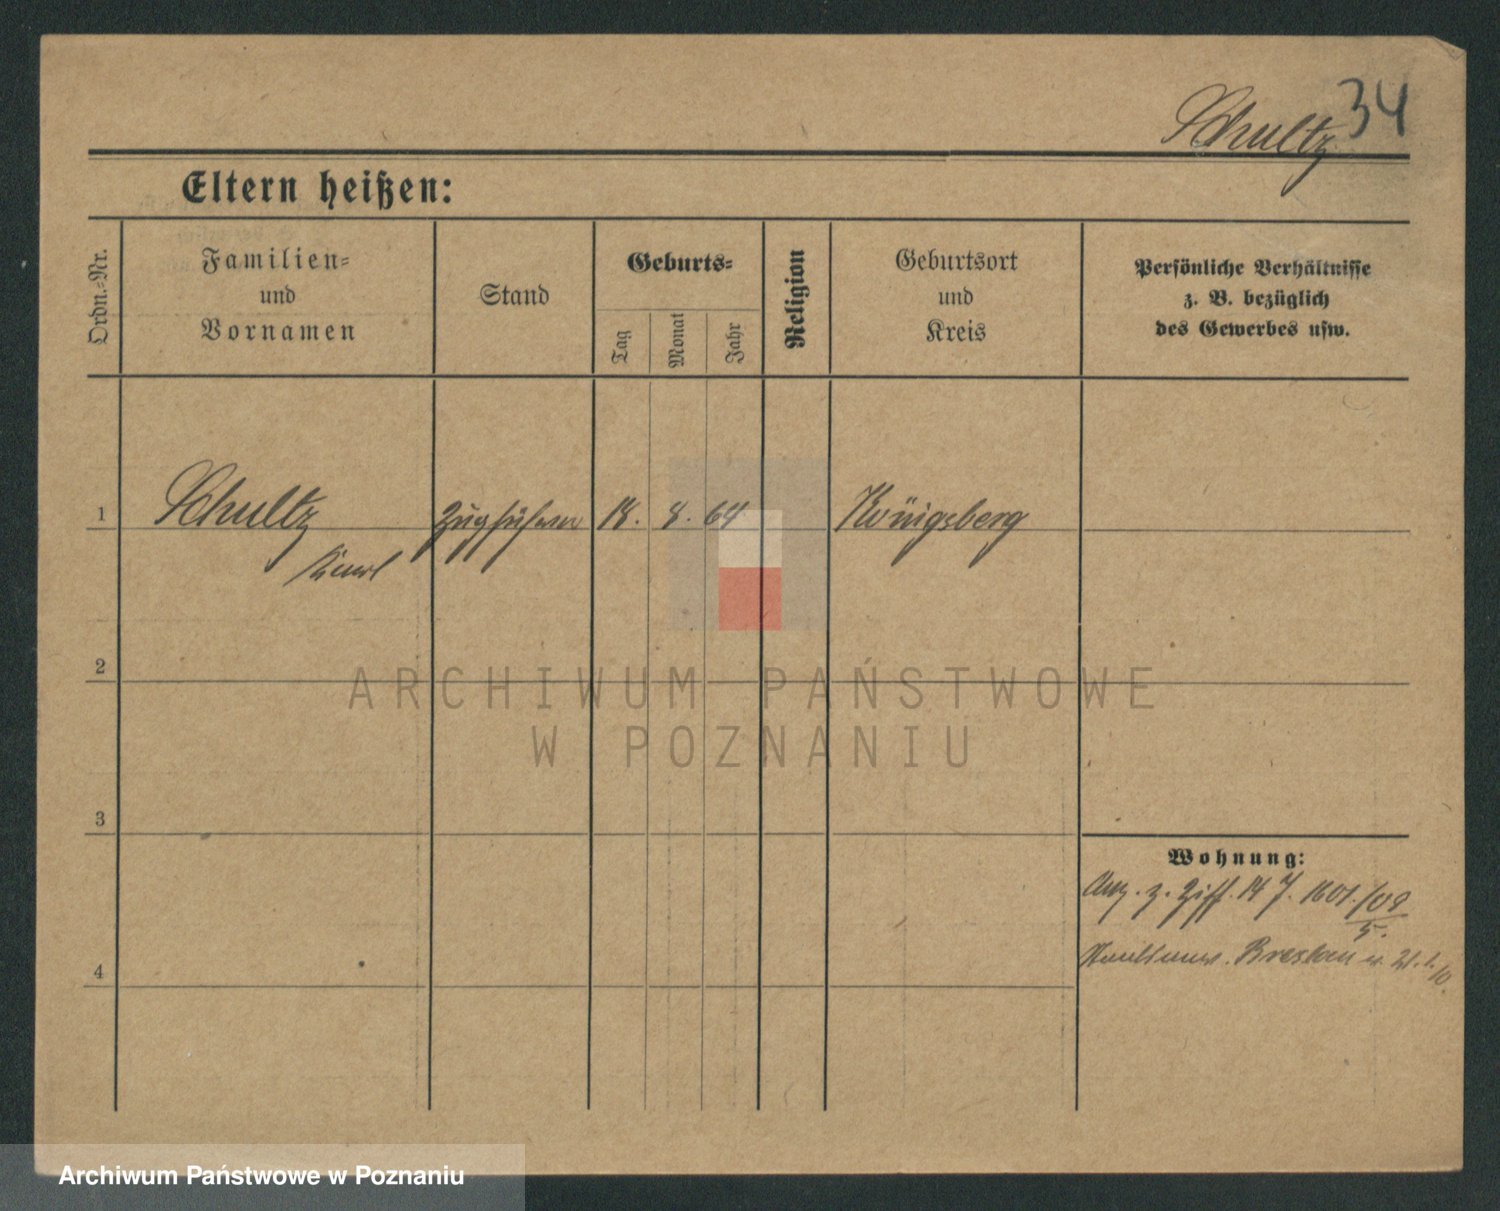 34
Schultz
Eltern heißen:
Ordn.-Nr.
Familien-
und
Vornamen
Stand
Geburts-
Tag
Monat
Jahr
Religion
Geburtsort
und
Kreis
Persönliche Verhältnisse
z. B. bezüglich
des Gewerbes usw.
1
Schultz
Karl
Zugführer
18. 8. 64
Königsberg
2
ARCHIWUM PAŃSTWOWE
W POZNANIU
3
Wohnung:
Anz. z. Ziff. 14 J. 1601./08
5.
Breslau
4
Archiwum Państwowe w Poznaniu